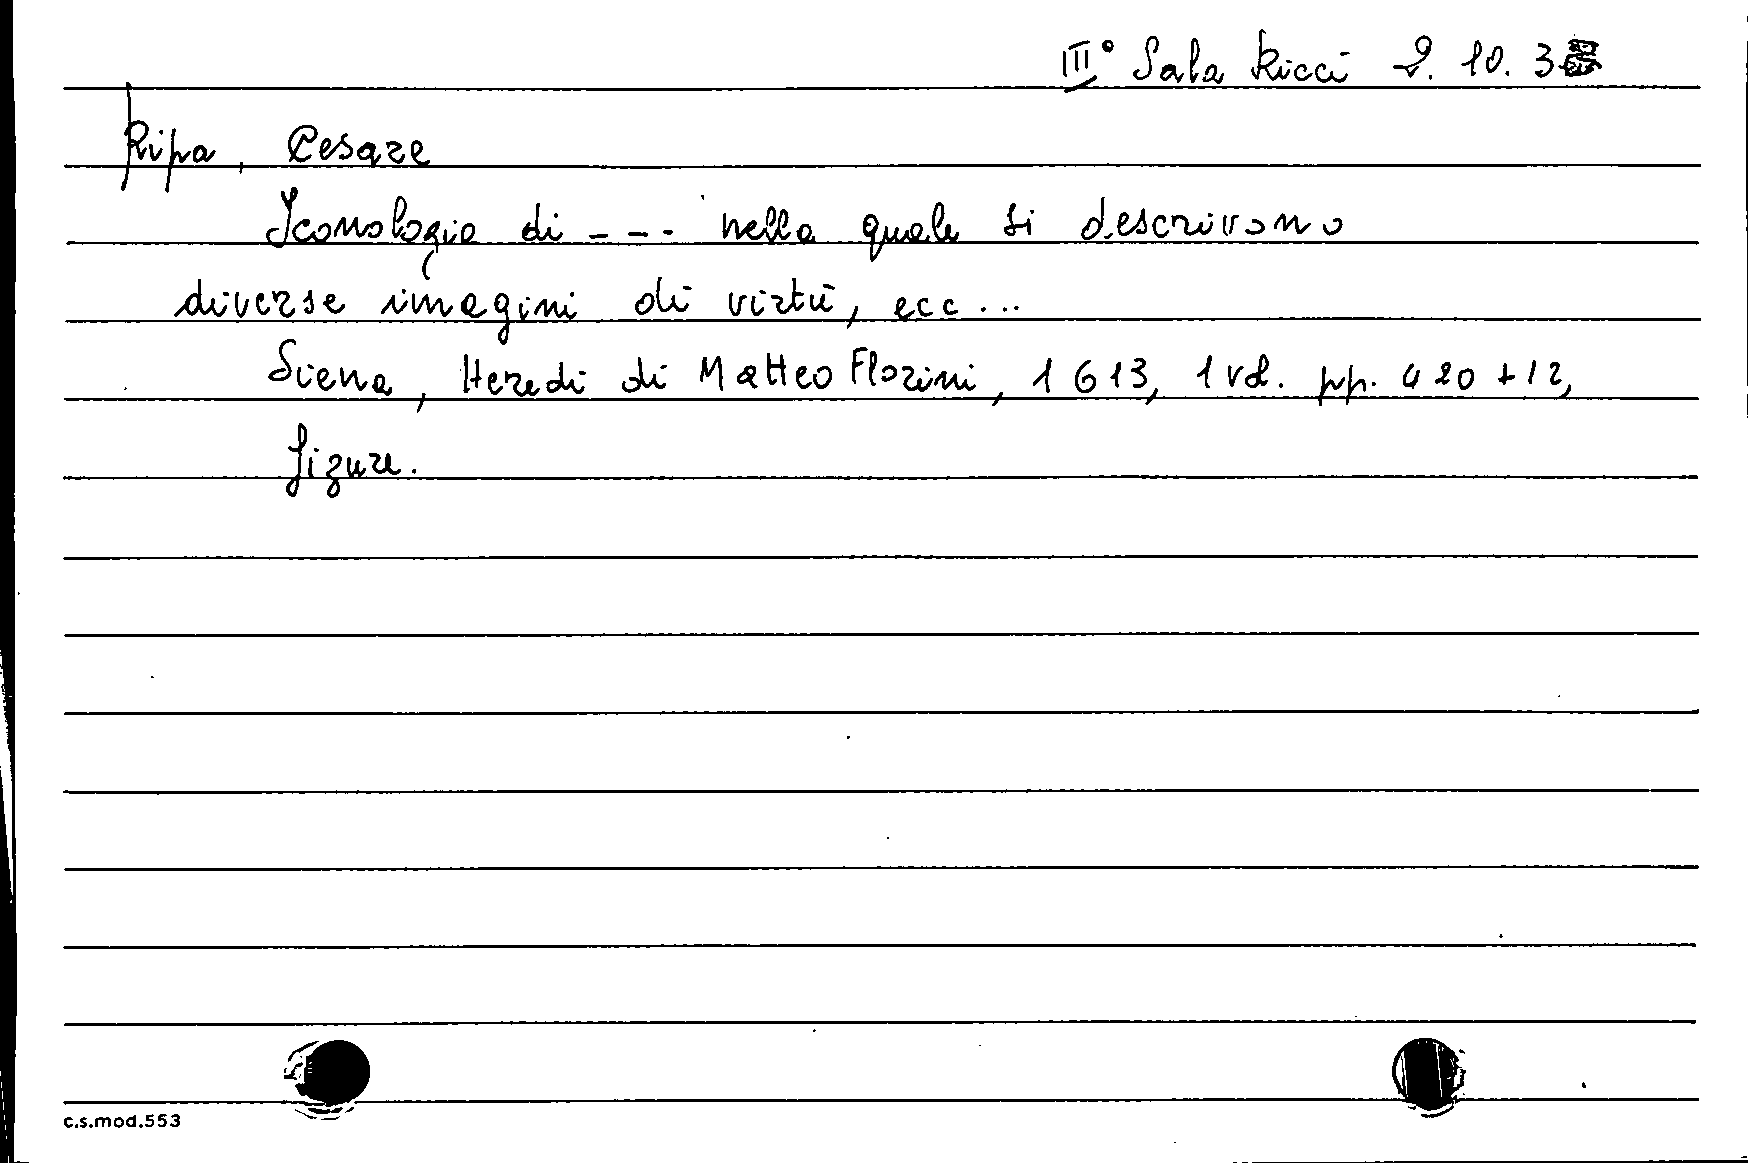 III° Sala Ricci 2. 10. 3
Ripa, Cesare
Iconologia di --- nella quale si descrivono
diverse imagini di virtù, ecc...
Siena, Heredi di Matteo Florini, 1613, 1 vol. pp. 420 + 12,
figure.
c.s.mod.553